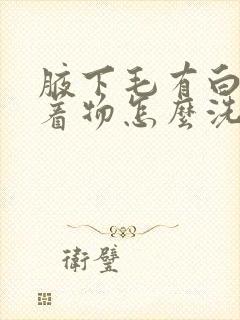 腋下毛有白
着物怎麼洗
衛璧